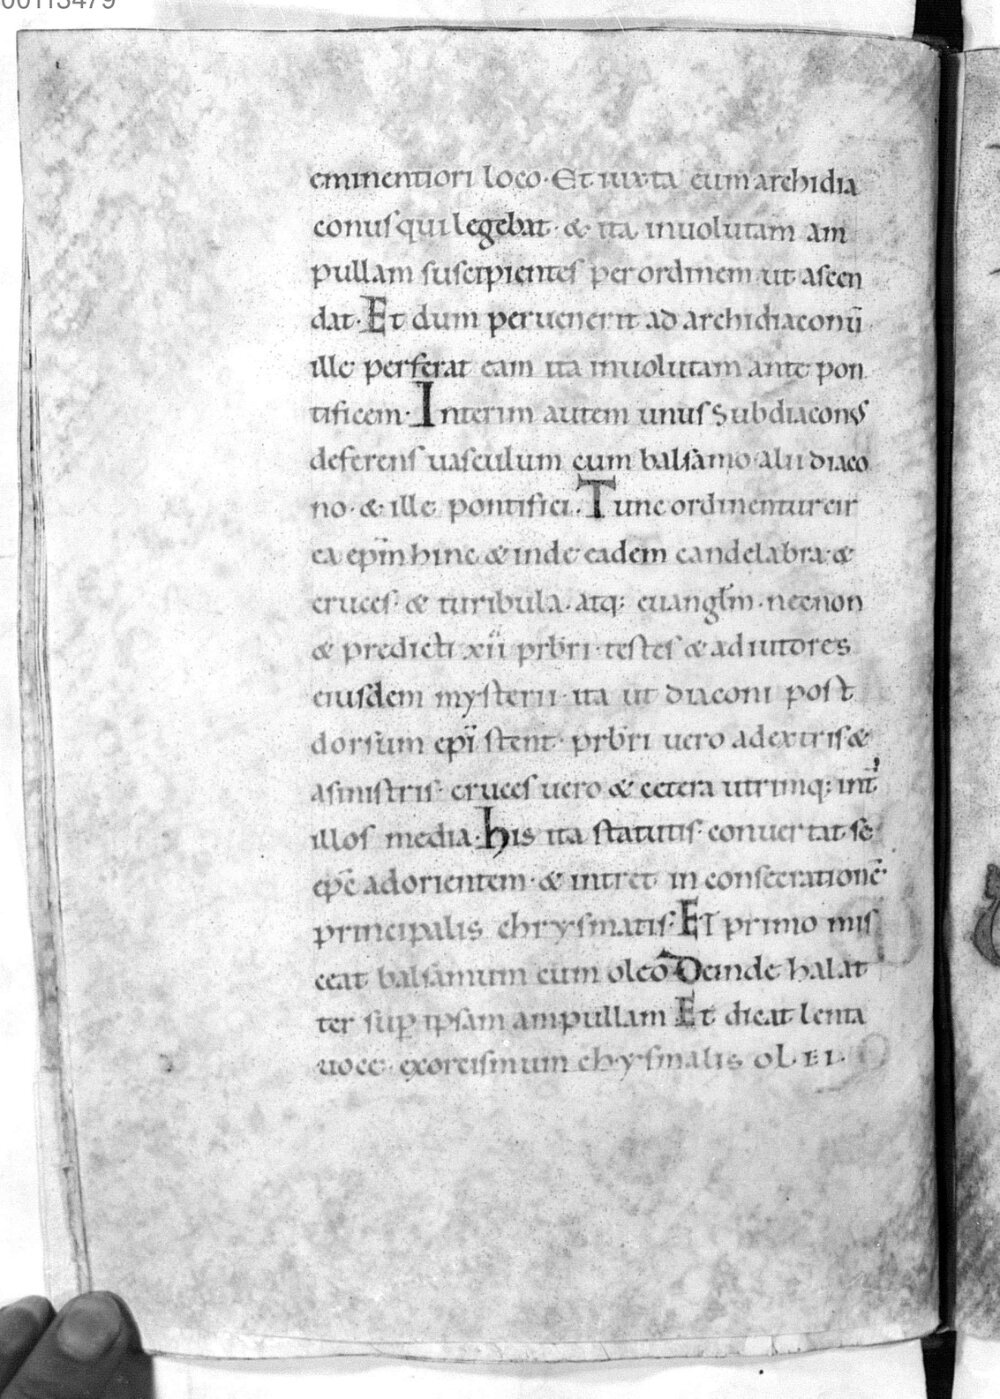 00113479
eminentiori loco· Et iuxta eum archidia
conus qui legebat· & ita inuolutam am
pullam suscipientes per ordinem ut ascen
dat· Et dum peruenerit ad archidiaconū
ille perferat eam ita inuolutam ante pon
tificem· Interim autem unus Subdiaconus
deferens uasculum cum balsamo alii diaco
no· & ille pontifici. Tunc ordinentur cir
ca epm̄ hinc & inde eadem candelabra· &
cruces· & turibula· atq: euangl̄m· necnon
& predicti xii prbr̄i· testes & adiutores
eiusdem mysterii· ita ut diaconi post
dorsum epī stent· prbr̄i uero adextris &
asinistris· cruces uero & cetera utrimq: int̄
illos media· his ita statutis· conuertat se
ep̄c adorientem· & intret in consecrationē
principalis chrysmatis· Et primo mis
ceat balsamum cum oleo Deinde halat
ter sup̄ ipsam ampullam Et dicat lenta
uoce· exorcismum chysmalis oLEI·